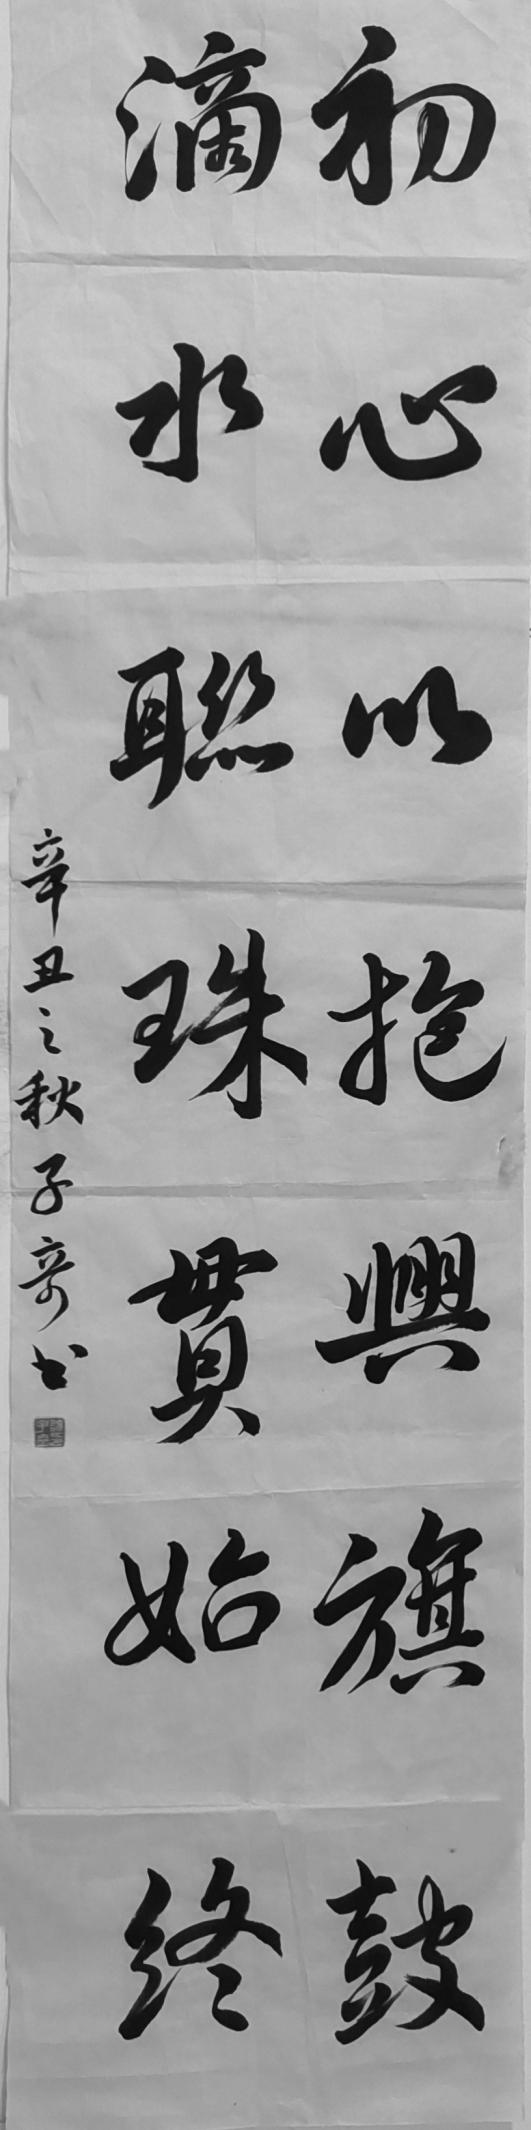 初心以抱興旗鼓
滴水聯珠貫始終
辛丑之秋子奇书